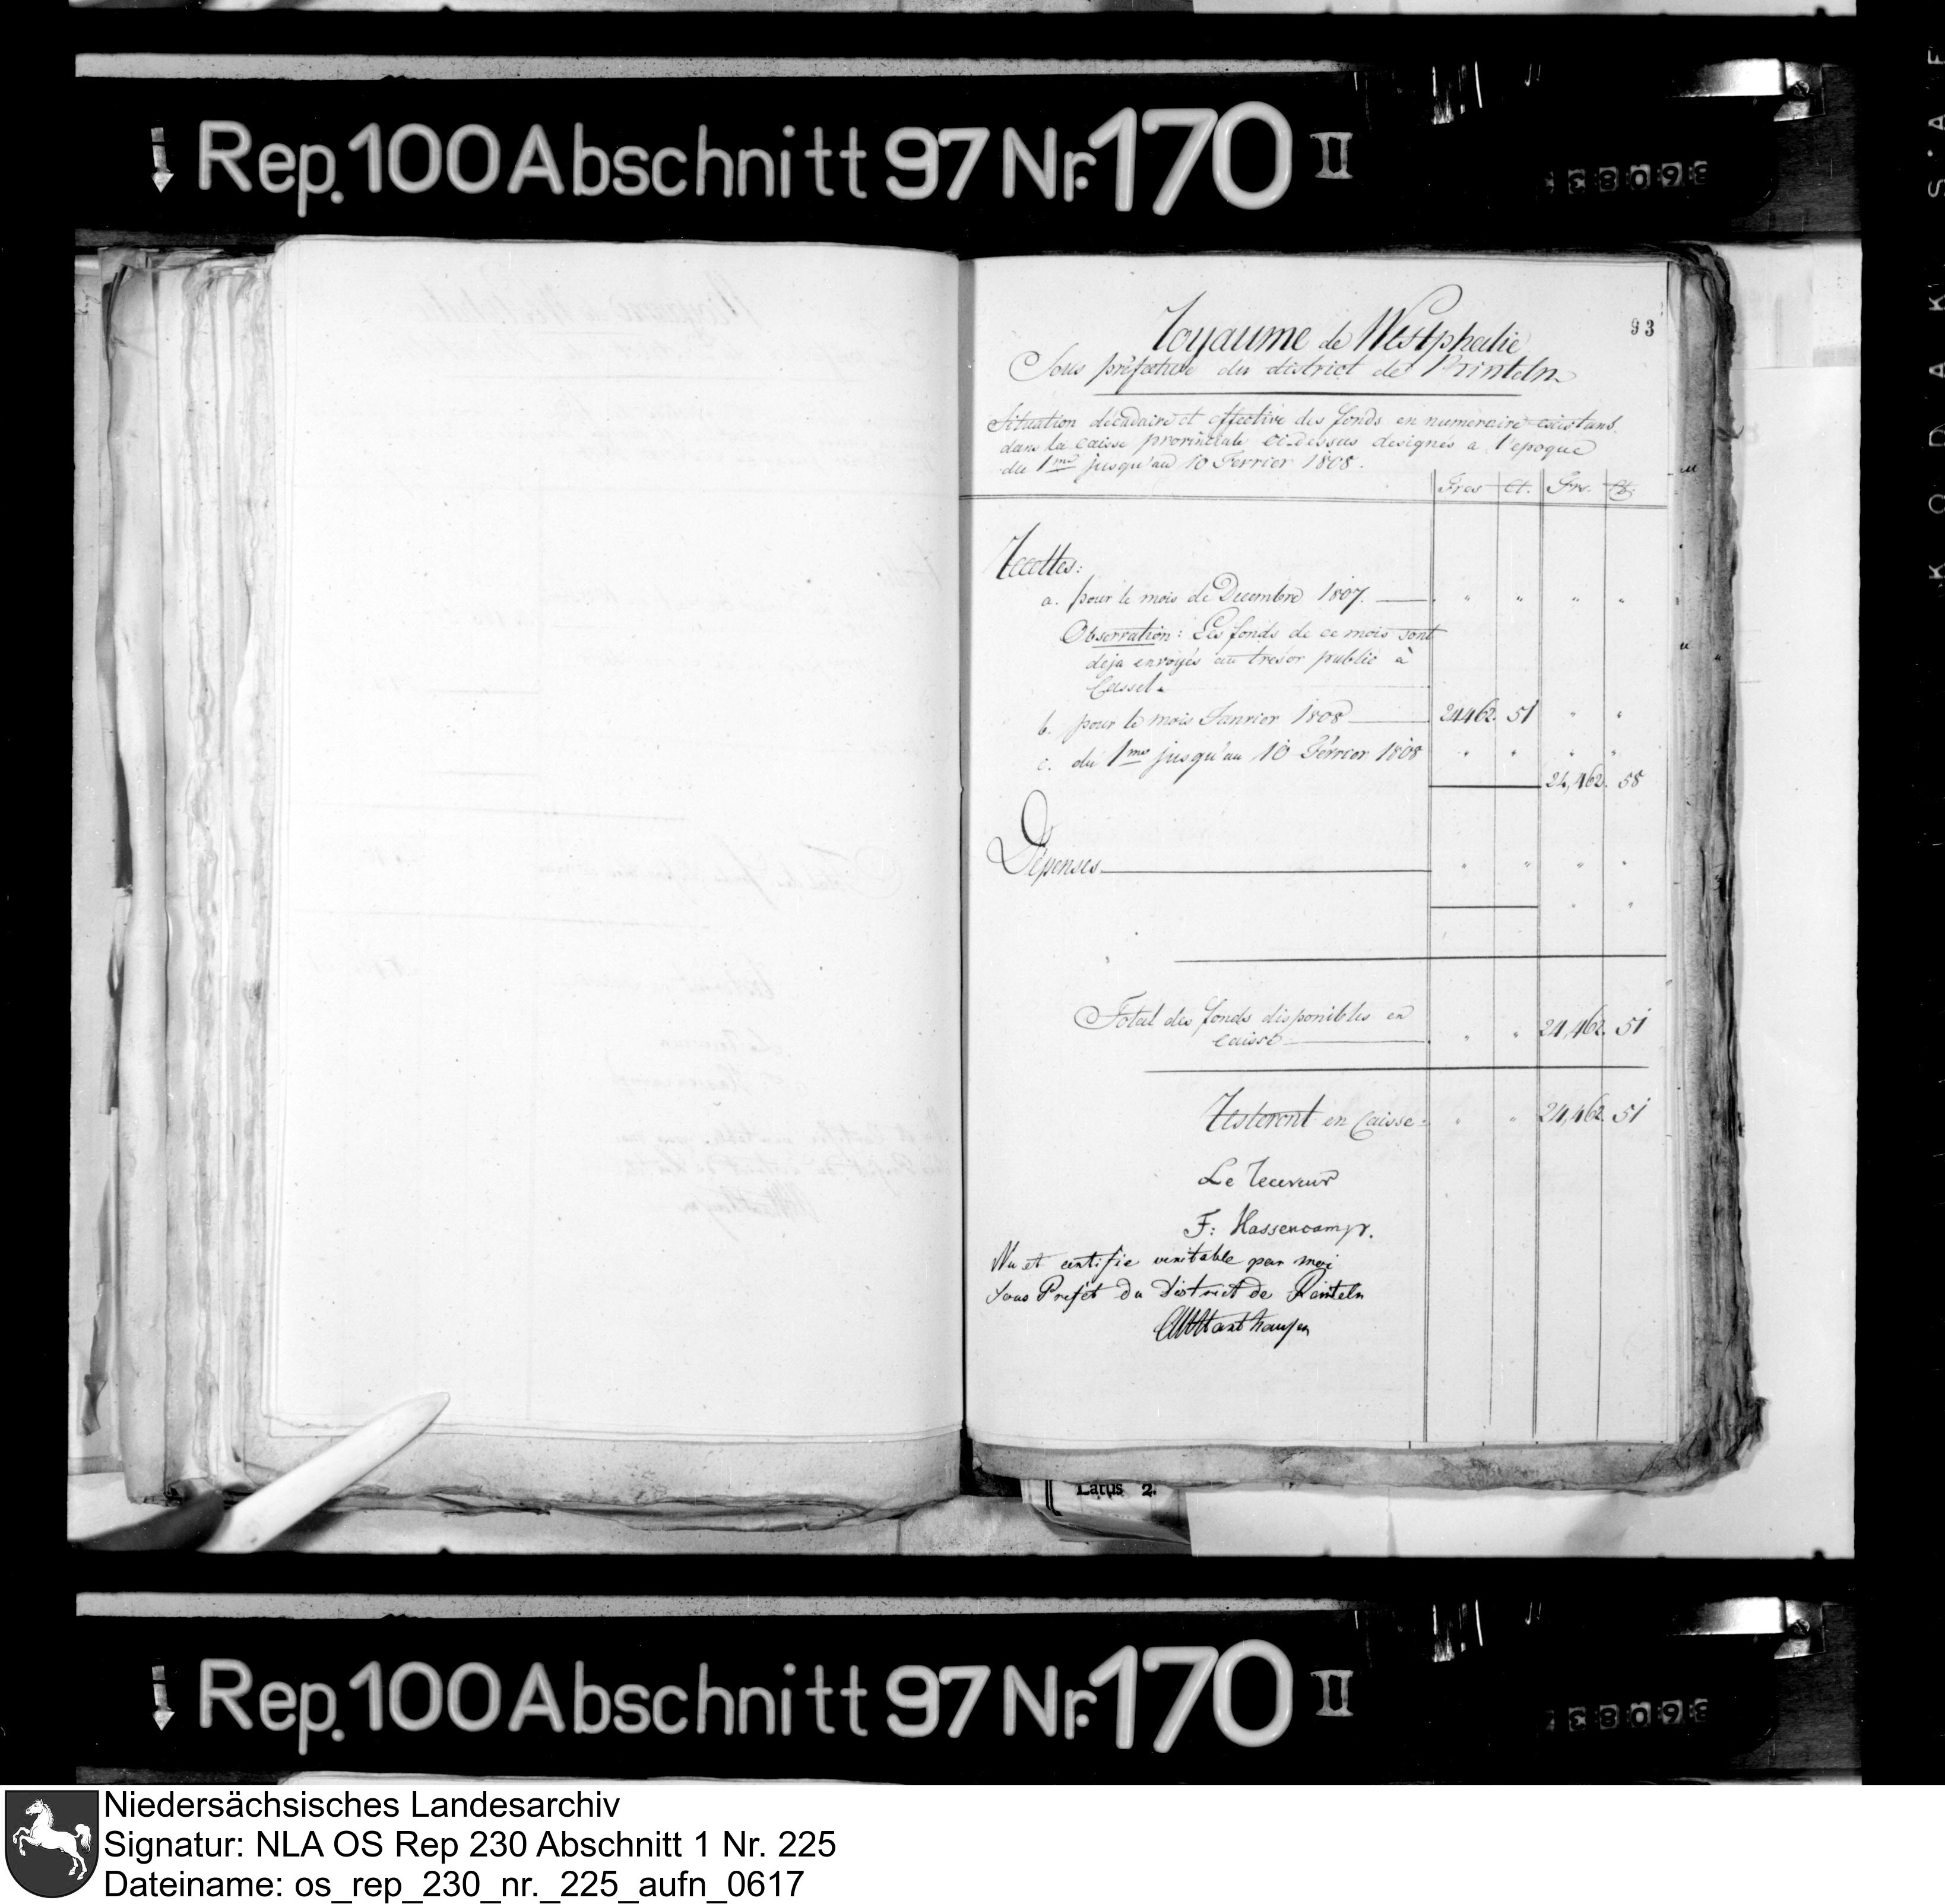 Rep. 100 Abschnitt 97 Nr. 170 II
93
Royaume de Westphalie
Sous préfecture du district de Rinteln
Situation décadaire et effective des fonds en numéraire existans
dans la caisse provinciale ci-dessus designés a l'epoque
du 1me jusqu'au 10 Fevrier 1808.
Frcs Ct. Frs. Ct.
Recettes:
a. pour le mois de Decembre 1807. " " " "
Observation: Les fonds de ce mois sont
deja envoyés au tresor public à
Cassel.
b. pour le mois Janvier 1808 24462. 51 " "
c. du 1me jusqu'au 10 Févrièr 1808 " " " "
24,462. 58
Dépenses " " " "
" "
Total des fonds disponibles en
caisse " " 24,462. 51
Resteront en Caisse " " 24,462. 51
Le Receveur
F: Hassencamp.
Vu et certifie veritable par moi
Sous Prefét du District de Rinteln
Latus 2.
Rep. 100 Abschnitt 97 Nr. 170 II
Niedersächsisches Landesarchiv
Signatur: NLA OS Rep 230 Abschnitt 1 Nr. 225
Dateiname: os_rep_230_nr._225_aufn_0617